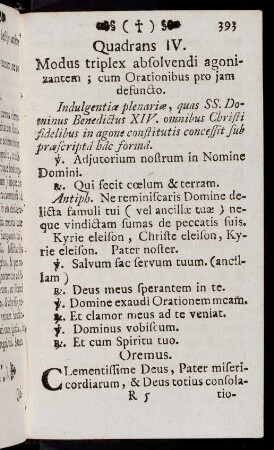 (†) 393
Quadrans IV.
Modus triplex absolvendi agoni-
zantem; cum Orationibus pro jam
defuncto.
Indulgentiæ plenariæ, quas SS. Do-
minus Benedictus XIV. omnibus Christi
fidelibus in agone constitutis concessit sub
præscripta hac forma.
℣. Adjutorium nostrum in Nomine
Domini.
℟. Qui fecit cœlum & terram.
Antiph. Ne reminiscaris Domine de-
licta famuli tui ( vel ancillæ tuæ ) ne-
que vindictam sumas de peccatis suis.
Kyrie eleison, Christe eleison, Ky-
rie eleison. Pater noster.
℣. Salvum fac servum tuum. (ancil-
lam)
℟. Deus meus sperantem in te.
℣. Domine exaudi Orationem meam.
℟. Et clamor meus ad te veniat.
℣. Dominus vobiscum.
℟. Et cum Spiritu tuo.
Oremus.
CLementissime Deus, Pater miseri-
cordiarum, & Deus totius consola-
R 5 tio-